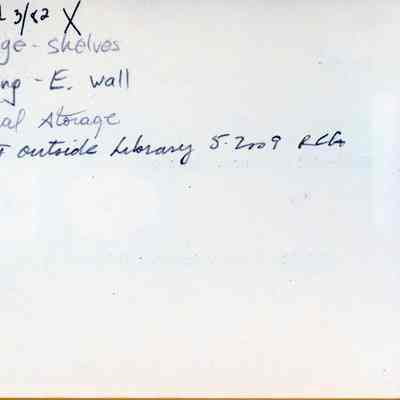 3/82 X
ge - shelves
ng - E. Wall
al Storage
T outside Library 5.2009 RCG